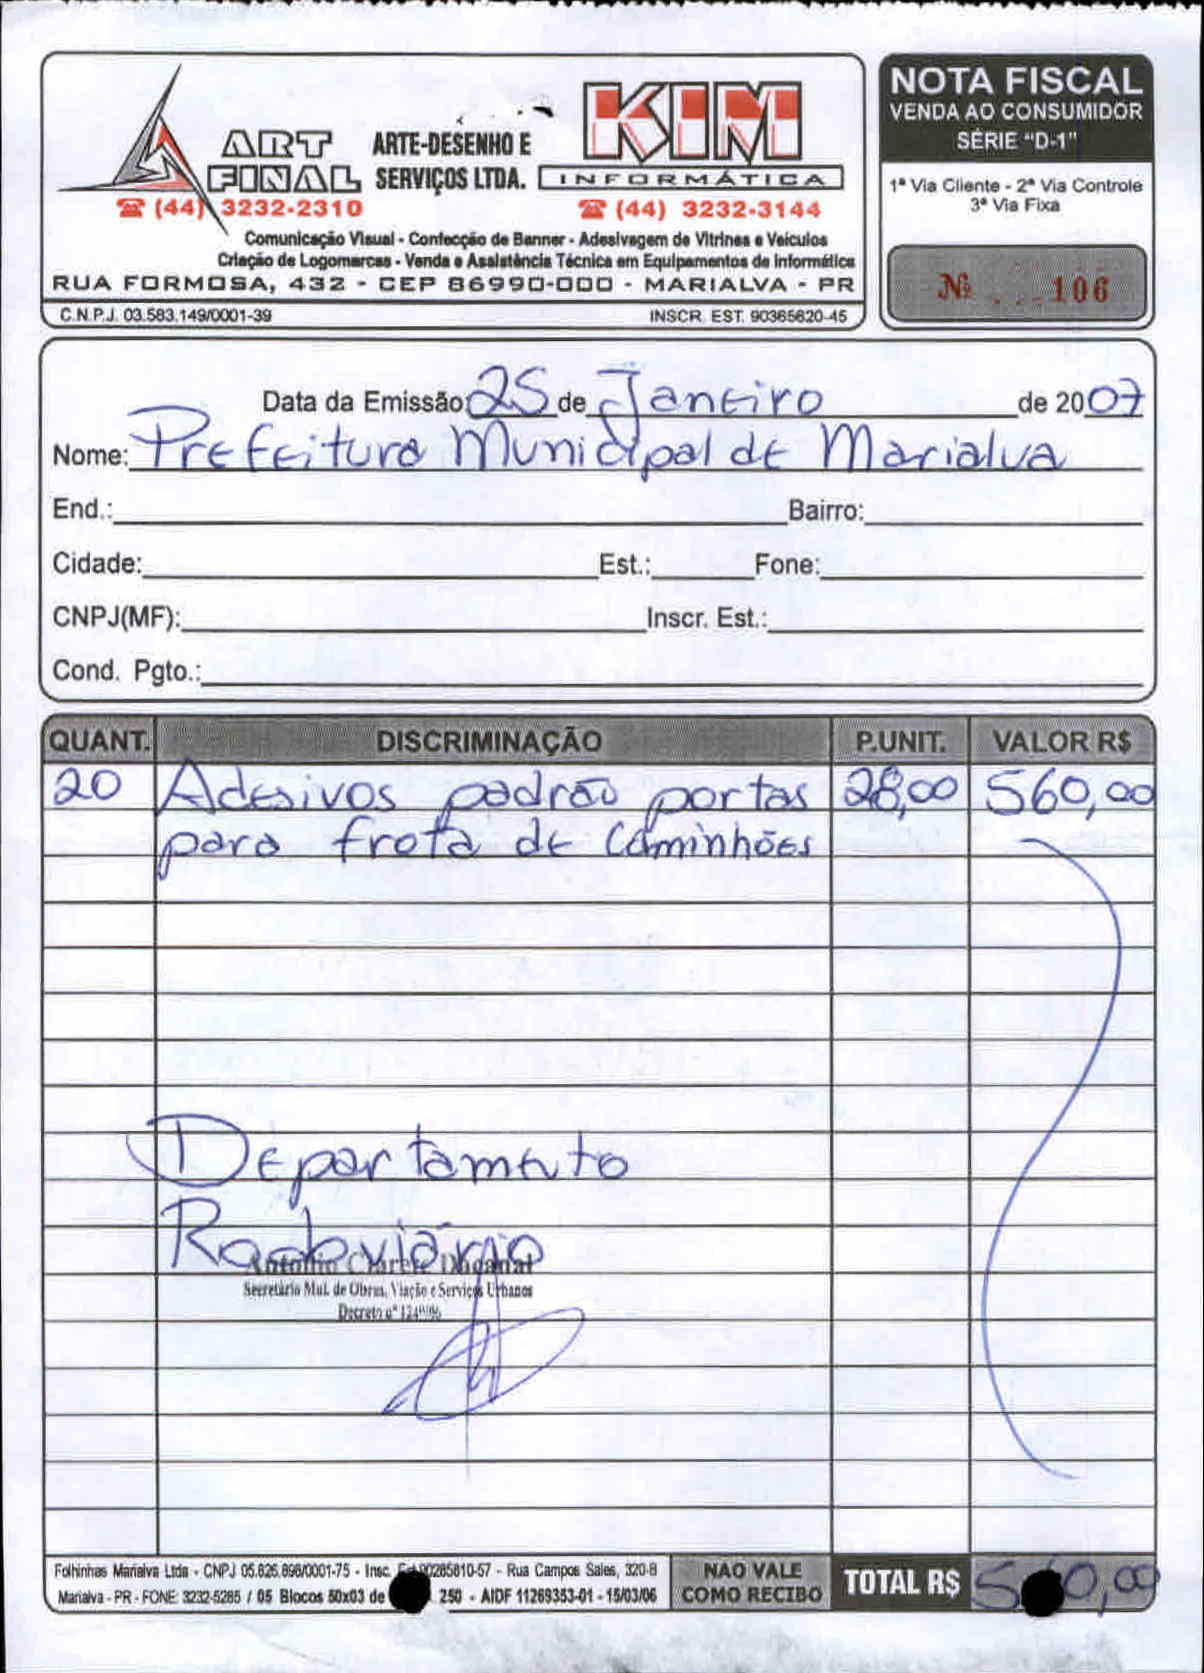 ART FINAL
ARTE-DESENHO E SERVIÇOS LTDA.
KIM INFORMÁTICA
(44) 3232-2310
(44) 3232-3144
Comunicação Visual - Confecção de Banner - Adesivagem de Vitrines e Veículos
Criação de Logomarcas - Venda e Assistência Técnica em Equipamentos de Informática
RUA FORMOSA, 432 - CEP 86990-000 - MARIALVA - PR
C.N.P.J. 03.583.149/0001-39 INSCR. EST. 90365620-45
NOTA FISCAL
VENDA AO CONSUMIDOR
SÉRIE "D-1"
1ª Via Cliente - 2ª Via Controle
3ª Via Fixa
Nº ...106
Data da Emissão 25 de Janeiro de 2007
Nome: Prefeitura Municipal de Marialva
End.: Bairro:
Cidade: Est.: Fone:
CNPJ(MF): Inscr. Est.:
Cond. Pgto.:
QUANT. DISCRIMINAÇÃO P.UNIT. VALOR R$
20 Adesivos padrão portas 28,00 560,00
para frota de Caminhões
Departamento
Rodoviário
Antonio
Secretário Mul. de Obras, Viação e Serviços Urbanos
Decreto nº
Folhinhas Marialva Ltda - CNPJ 05.826.898/0001-75 - Insc. Est 00285810-57 - Rua Campos Sales, 320-B
Marialva - PR - FONE: 3232-5285 / 05 Blocos 50x03 de 250 - AIDF 11269353-01 - 15/03/06
NAO VALE
COMO RECIBO
TOTAL R$ 560,00